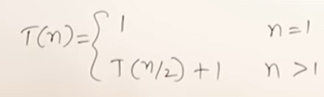 T(n)= { 1 n=1
T(n/2)+1 n>1